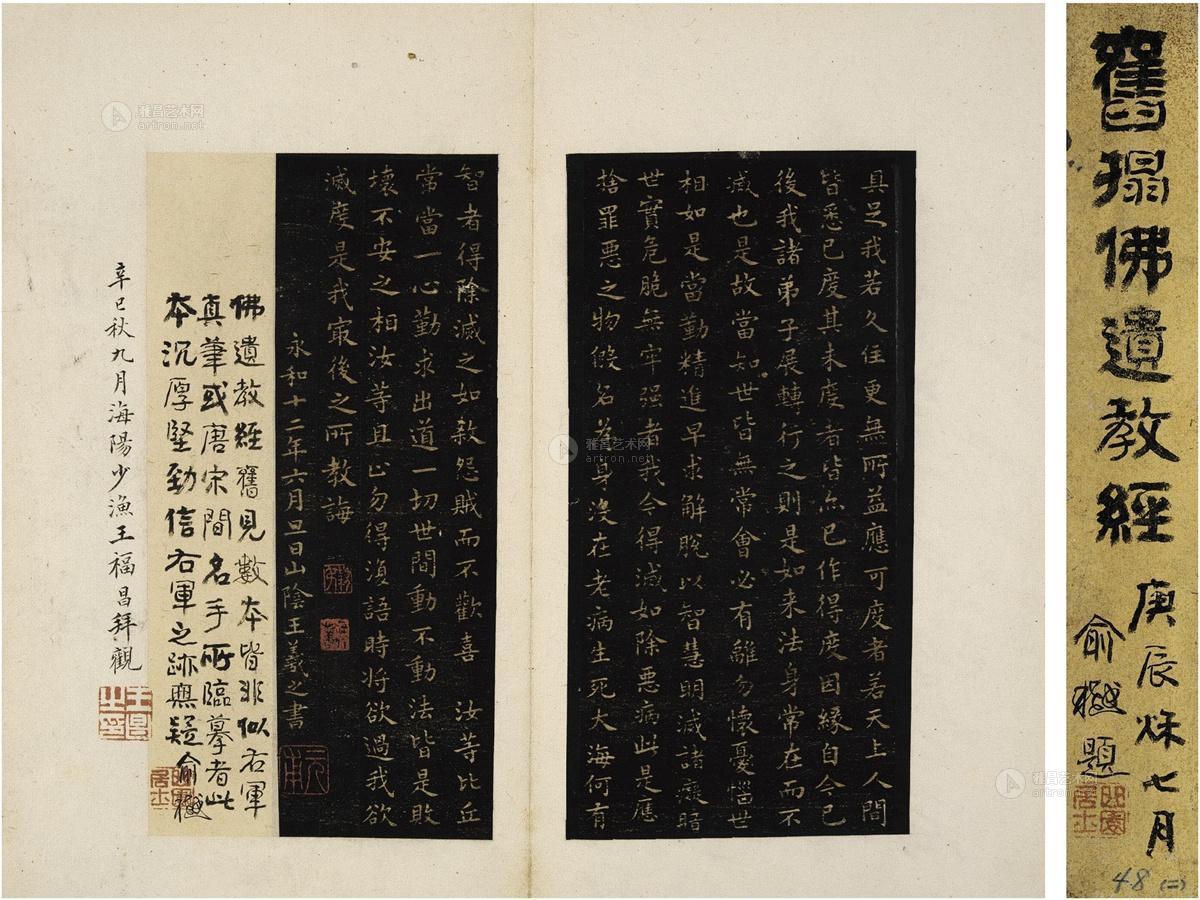 舊搨佛遺教經
庚辰秌七月
俞樾題
曲園居士
48(二)
具足我若久住更無所益應可度者若天上人間
皆悉已度其未度者皆亦已作得度因緣自今已
後我諸弟子展轉行之則是如来法身常在而不
滅也是故當知世皆無常會必有離勿懷憂惱世
相如是當勤精進早求解脫以智慧明滅諸癡暗
世實危脆無牢强者我今得滅如除惡病此是應
捨罪惡之物假名為身沒在老病生死大海何有
智者得除滅之如殺怨賊而不歡喜 汝等比丘
常當一心勤求出道一切世間動不動法皆是敗
壞不安之相汝等且止勿得復語時將欲過我欲
滅度是我㝡後之所教誨
永和十二年六月旦日山陰王羲之書
佛遺教經舊見數本皆非似右軍
真筆或唐宋間名手所臨摹者此
本沉厚堅勁信右軍之跡無疑俞樾
曲園居士
辛巳秋九月海陽少漁王福昌拜觀
雅昌艺术网
artron.net
雅昌艺术网
artron.net
雅昌艺术网
artron.net